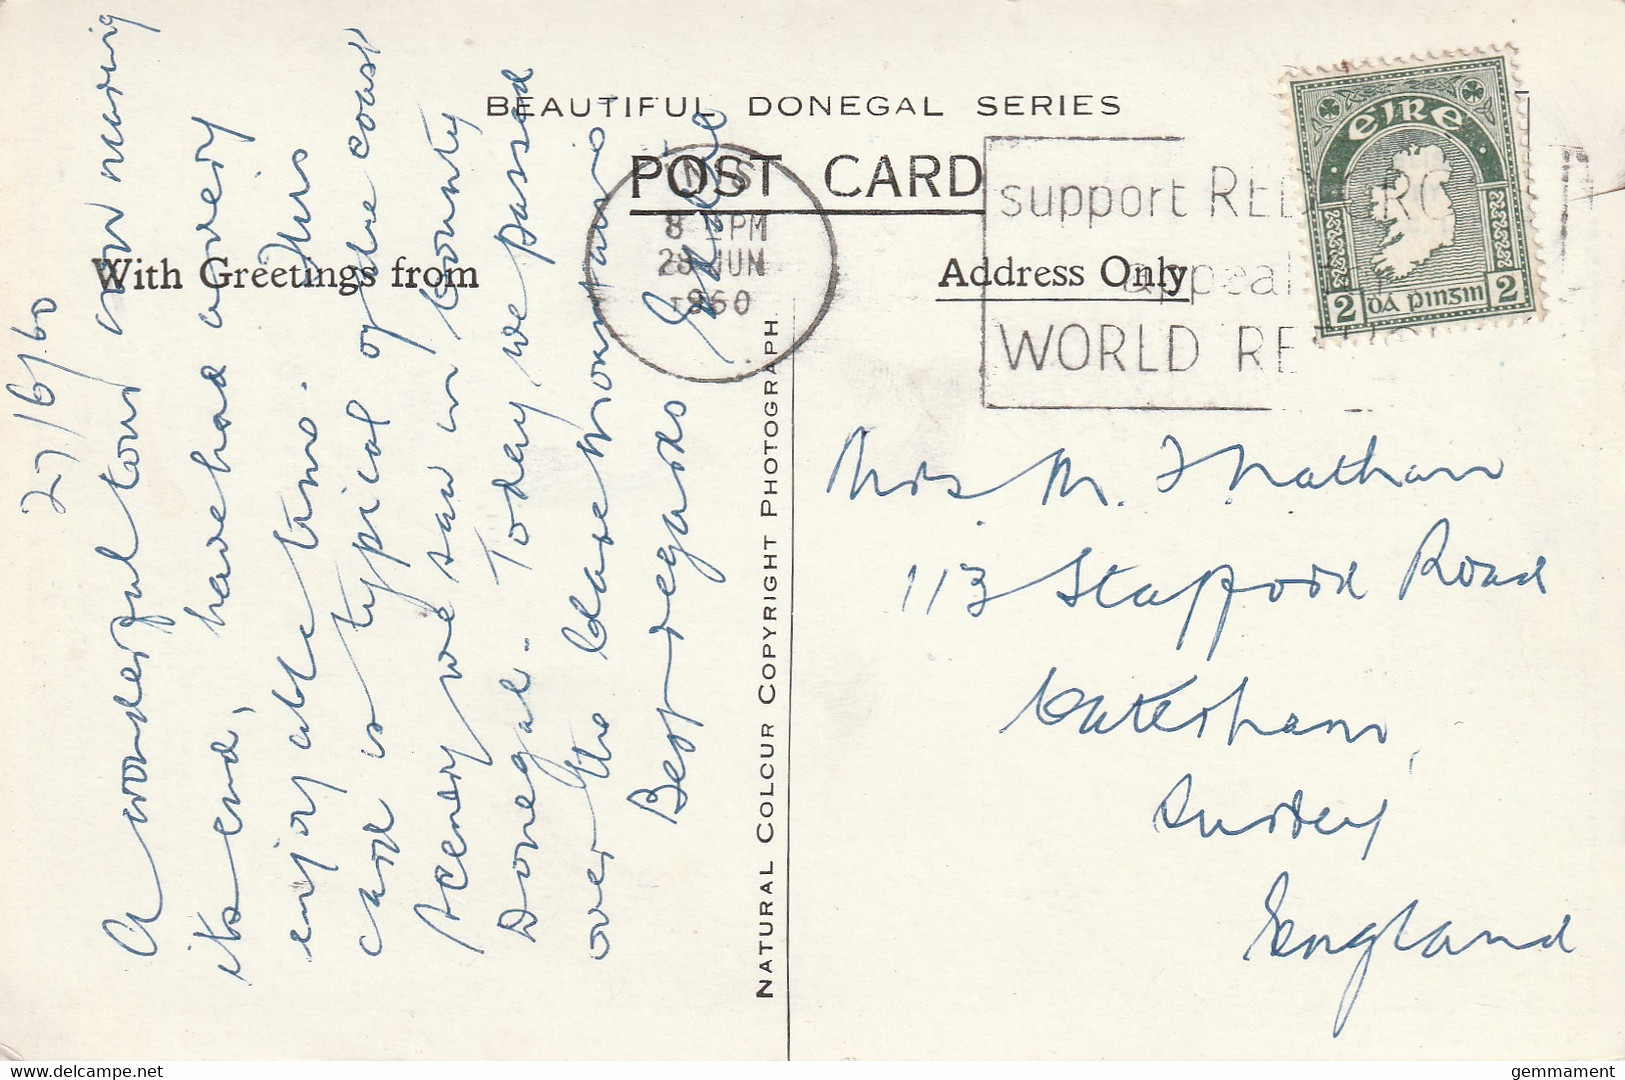 BEAUTIFUL DONEGAL SERIES
POST CARD
With Greetings from
Address Only
NATURAL COLOUR COPYRIGHT PHOTOGRAPH
27/6/60
A wonderful tour now nearing
its end, have had a very
enjoyable time. This
card is typical of the coast
scenery we saw in County
Donegal. Today we passed
over the blue Mountains
Best regards
Mrs M. J Nathan
113 Stafford Road
Caterham,
Surrey
England
8 PM
28 JUN
1960
support RED
appeal
WORLD RE
EIRE
2 DÁ PINGIN 2
delcampe.net
gemmament